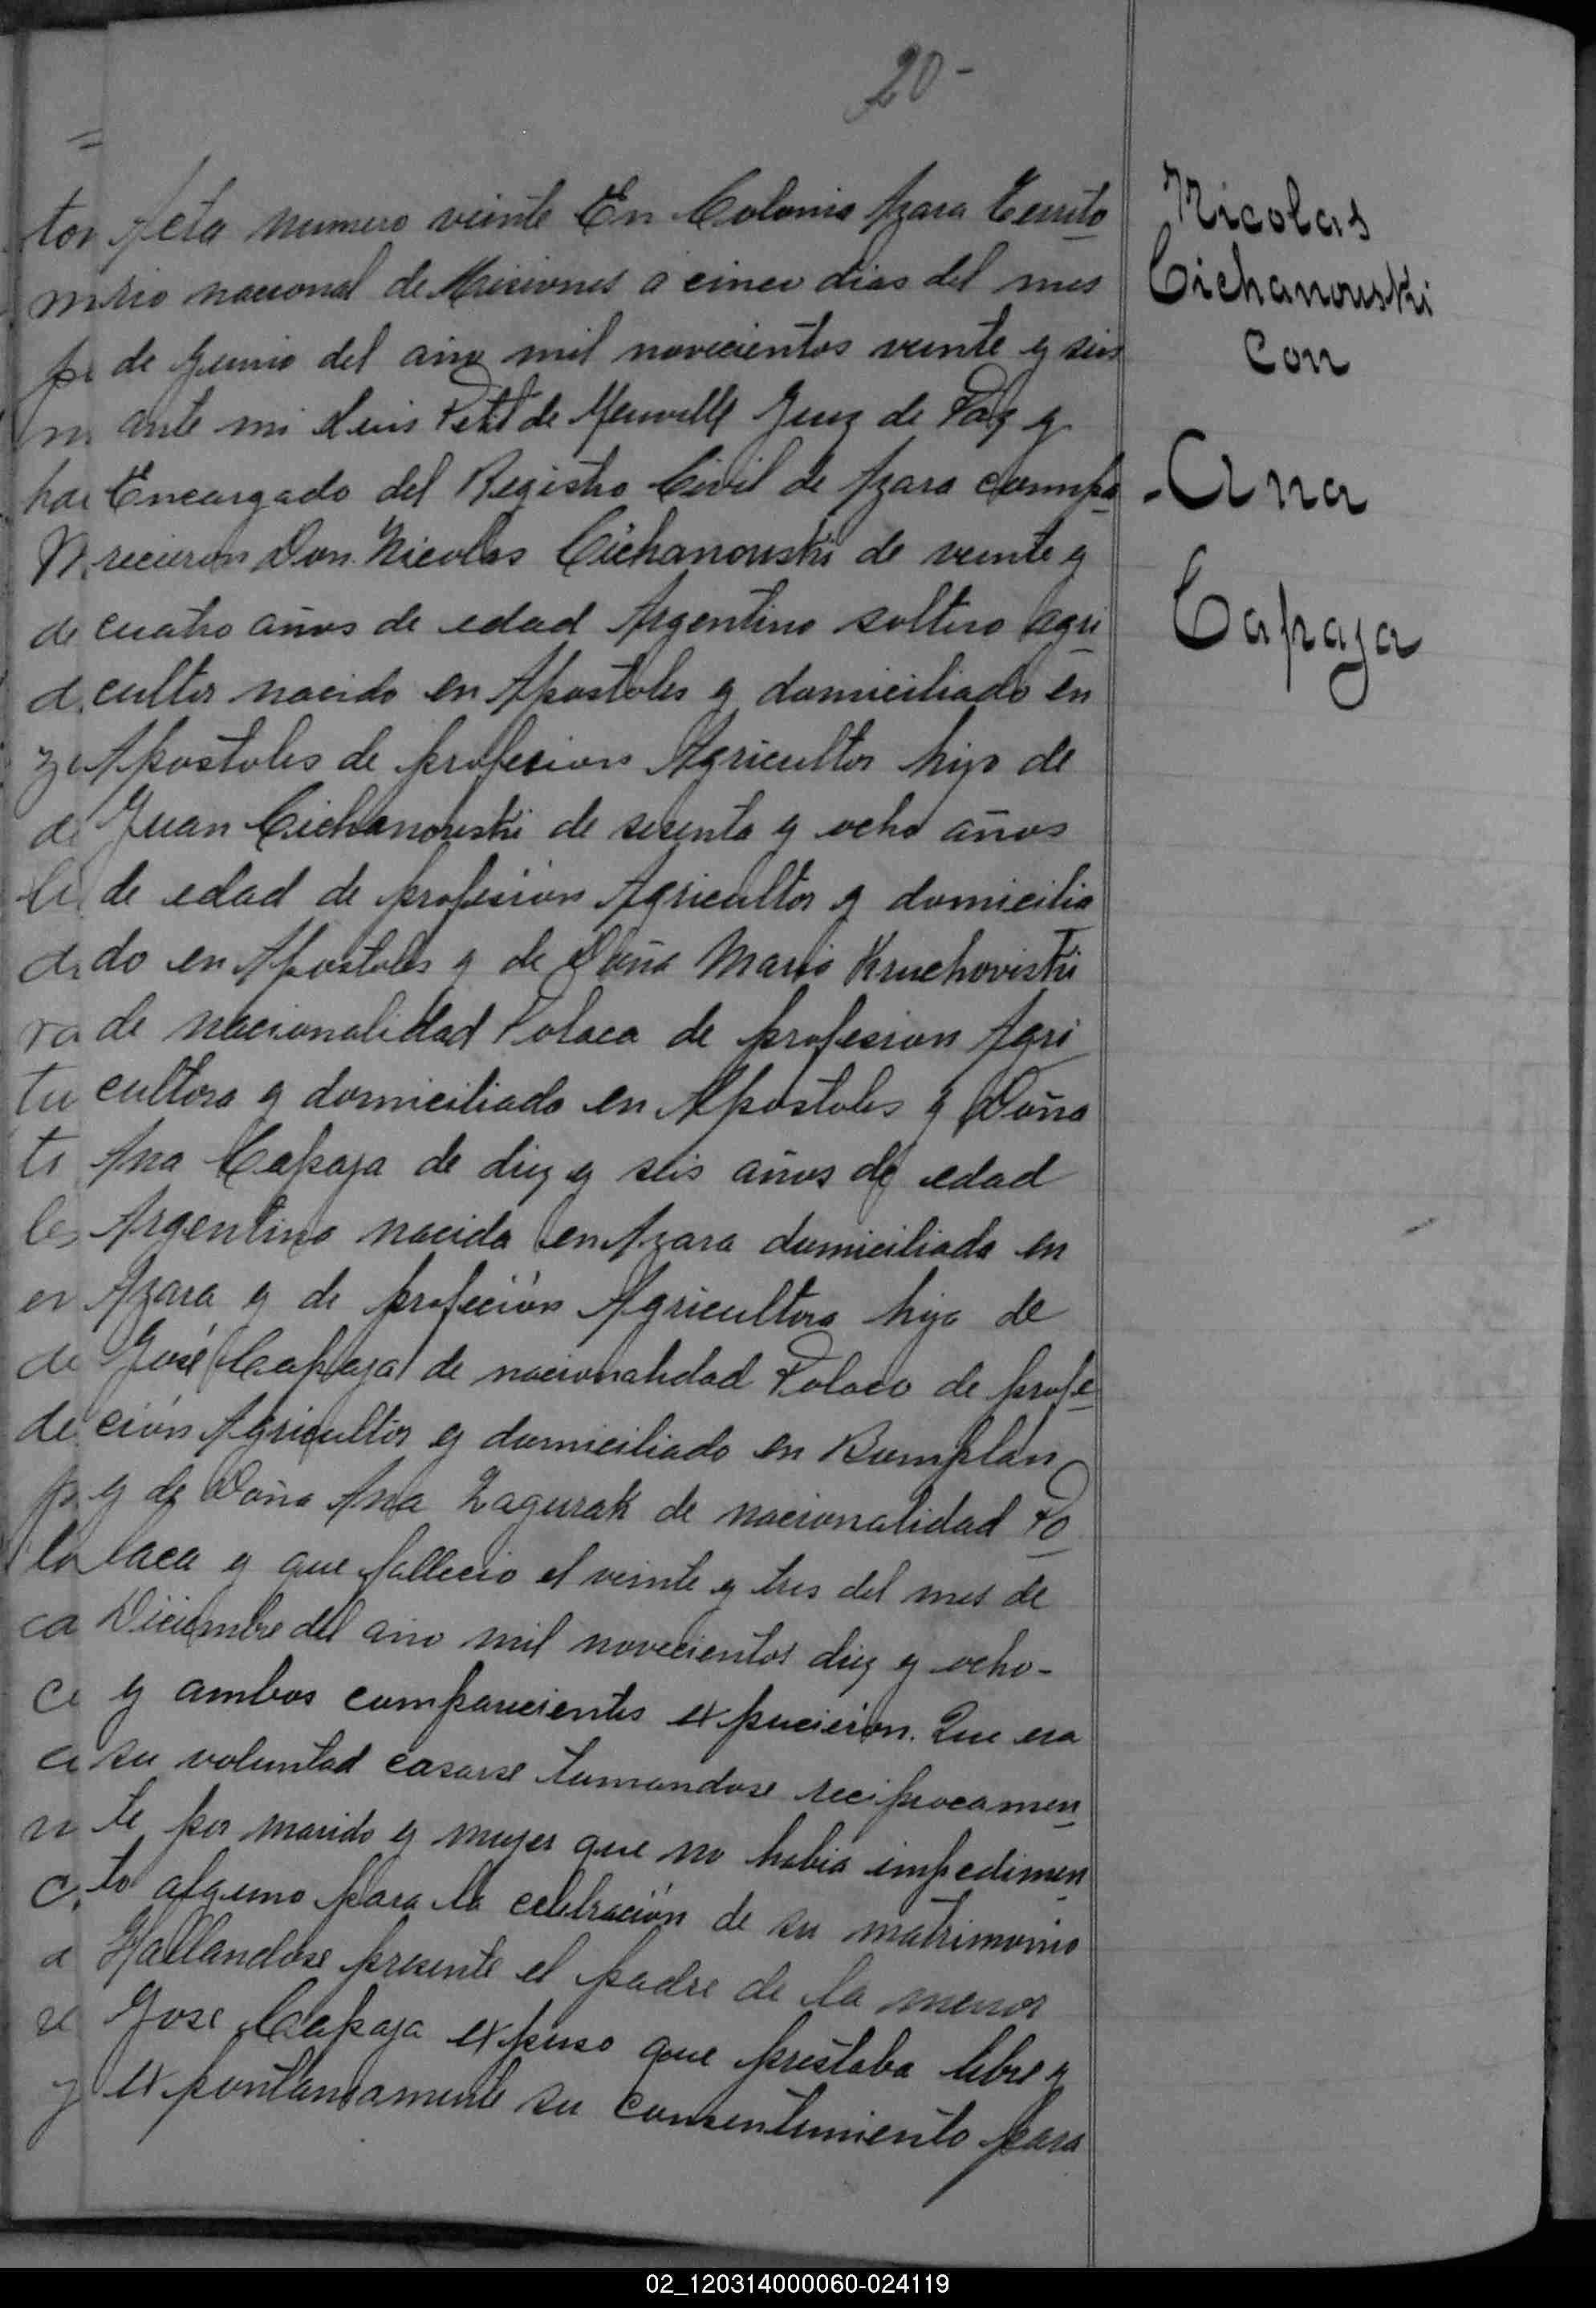 20-
Acta numero veinte En Colonia Azara Territo
rio nacional de Misiones a cinco dias del mes
de Junio del año mil novecientos veinte y seis
ante mi Luis Petit de Meurville Juez de Paz y
Encargado del Registro Civil de Azara compa
recieron Don Nicolas Cichanouski de veinte y
cuatro años de edad Argentino soltero agri
cultor nacido en Apostoles y domiciliado en
Apostoles de profesion Agricultor hijo de
Juan Cichanouski de sesenta y ocho años
de edad de profesion Agricultor y domicilia
do en Apostoles y de Doña Maria Kruchoviski
de nacionalidad Polaca de profesion Agri
cultora y domiciliada en Apostoles y Doña
Ana Capaja de diez y seis años de edad
Argentina nacida en Azara domiciliada en
Azara y de profeción Agricultora hija de
José Capaja de nacionalidad Polaco de profe
ción Agricultor y domiciliado en Bomplan
y de Doña Ana Zagurak de nacionalidad Po
laca y que fallecio el veinte y tres del mes de
Diciembre del año mil novecientos diez y ocho-
y ambos comparecientes expucieron. Que era
su voluntad casarse tomandose reciprocamen
te por marido y mujer que no habia impedimen
to alguno para la celebración de su matrimonio
Hallandose presente el padre de la menor
Jose Capaja expuso que prestaba libre y
expontaneamente su consentimiento para
Nicolas
Cichanouski
Con
Ana
Capaja
02_120314000060-024119